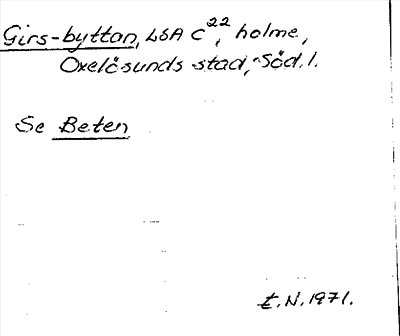 Girs-byttan, LSA C²², holme,
Oxelösunds stad, Söd. l.
Se Beten
E. N. 1971.